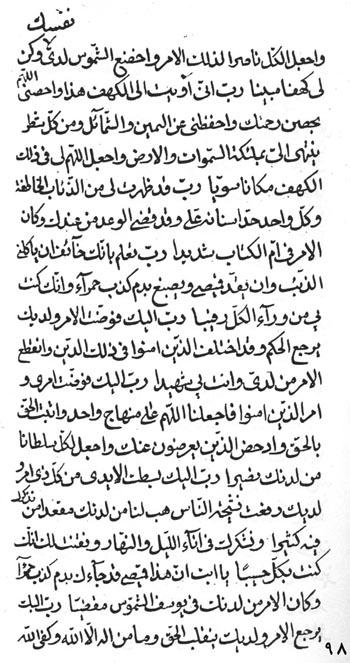 نفسك
واجعل الكل ناصرا لذلك الامر واخضع الشموس لدى وكن
لى كهفا مبينا رب انى أويت الى الكهف هذا واحصنى اللهم
بحصن رحمتك واحفظنى عن اليمين والشمائل ومن كل شطر
ينتهى الى مملكة السموات والارض واجعل اللهم لى فى ذلك
الكهف مكانا سويا رب قد ظهرت لى من الذئاب الخالفة
وكل واحد حد اسنانه على وقد قضى الوعد من عندك وكان
الامر فى ام الكتاب شديدا رب تعلم بانك خائف ان ياكلنى
الذئب وان يقد قميصى ويصبغ بدم كذب حمرآء وانك كنت
بى من ورآء الكل رقيبا رب اليك فوضت الامر ولديك
يرجع الحكم وقد اختلف الذين امنوا فى ذلك الدين وانقطع
الامر من لدى وانت بى شهيدا رب اليك فوضت امرى و
امر الذين امنوا فاجعلنا اللهم على منهاج واحد واثبت الحق
بالحق وادحض الذين يعرضون عنك واجعل لكل سلطانا
من لدنك نصيرا رب اليك بسطت الايدى من كل ذى امر و
لديك رفعت الناس هب لنا من لدنك مقعد امن نذكرك
فيه كثيرا ونشكرك فى آنآء الليل والنهار ونقنت لك انك
كنت بكل حسيبا يا ابت ان هذا قميصى قد جاءك بدم كذب حمرآ
وكان الامر من لدنك فى يوسف الشموس مقضيا رب اليك
يرجع الامر ولديك ينقلب الحق وما من اله الا الله وكفى الله
٩٨